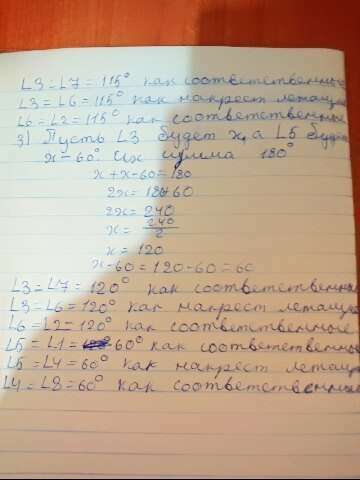 ∠3 = ∠7 = 115° как соответственные
∠3 = ∠6 = 115° как накрест лежащие
∠6 = ∠2 = 115° как соответственные
3) Пусть ∠3 будет x, а ∠5 будет
x - 60°. Их сумма 180°
x + x - 60 = 180
2x = 180 + 60
2x = 240
x = 240/2
x = 120
x - 60 = 120 - 60 = 60
∠3 = ∠7 = 120° как соответственные
∠3 = ∠6 = 120° как накрест лежащие
∠6 = ∠2 = 120° как соответственные
∠5 = ∠1 = 60° как соответственные
∠5 = ∠4 = 60° как накрест лежащие
∠4 = ∠8 = 60° как соответственные